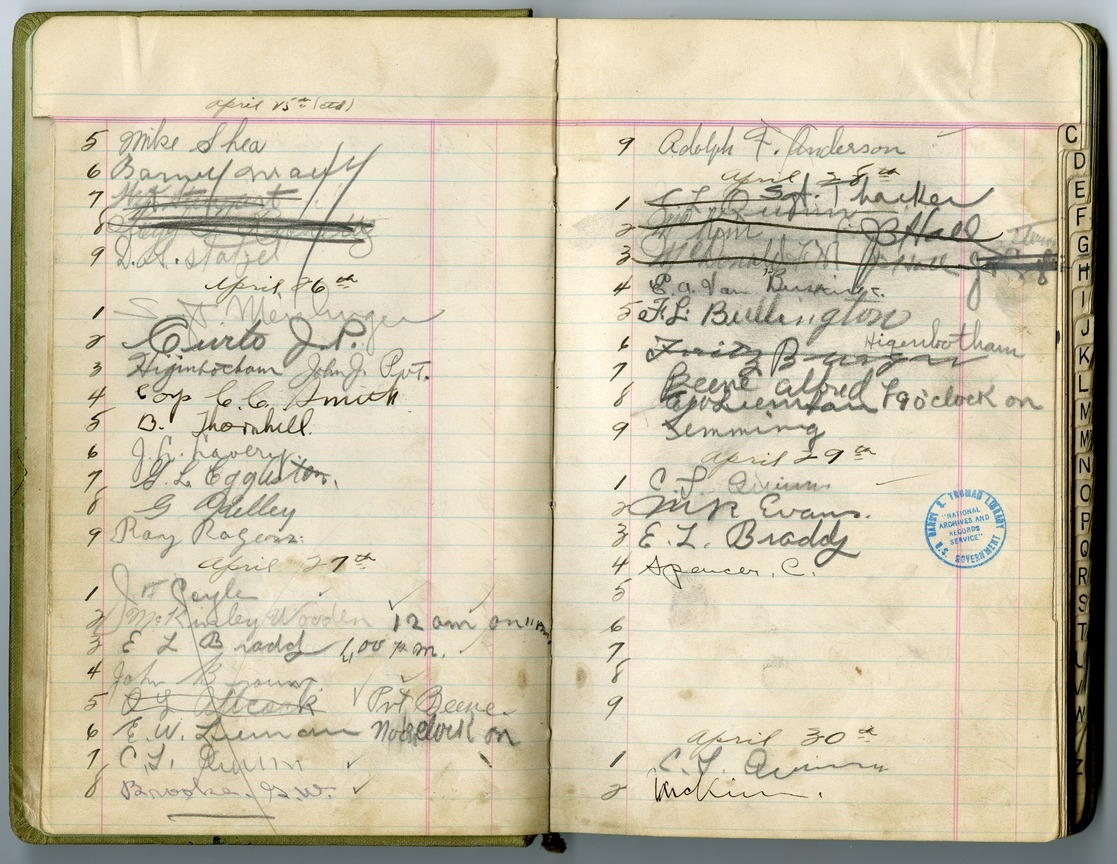 April 25th (ctd)
5 Mike Shea
6 Barney
7
8
9 D. H. Statzel
April 26th
1
2 Curto J. P.
3 Higinbotham John J. Pvt.
4 Corp C. C. Smith
5 B. Thornhill.
6 J. L. Lavery.
7 G. L. Eggleston.
8 G
9 Ray Rogers.
April 27th
1 J. H. Coyle
2 McKinley Wooden 12 am on
3 E L Bradd 4,00 p.m.
4 John Brown.
5 Allcock Pvt Beene.
6 E. W. Lieman No oclock on
7 C. L. Quinn
8 Brooke. G. W.
9 Adolph F. Anderson
April 28th
1 Sgt. Thacker
2 J B Hall
3
4 E. A. Van Buskirk.
5 F. L. Bullington
6 Higenbotham
7 Beene Alfred
8 9 o'clock on
9 Lemming
April 29th
1 C. L. Quinn
2 M R Evans.
3 E. L. Bradd
4 Spencer, C.
5
6
7
8
9
April 30th
1 C. L. Quinn
2
HARRY S. TRUMAN LIBRARY
"NATIONAL
ARCHIVES AND
RECORDS
SERVICE"
U.S. GOVERNMENT
C
D
E
F
G
H
I
J
K
L
M
M
N
O
P
Q
R
S
T
U
V
W